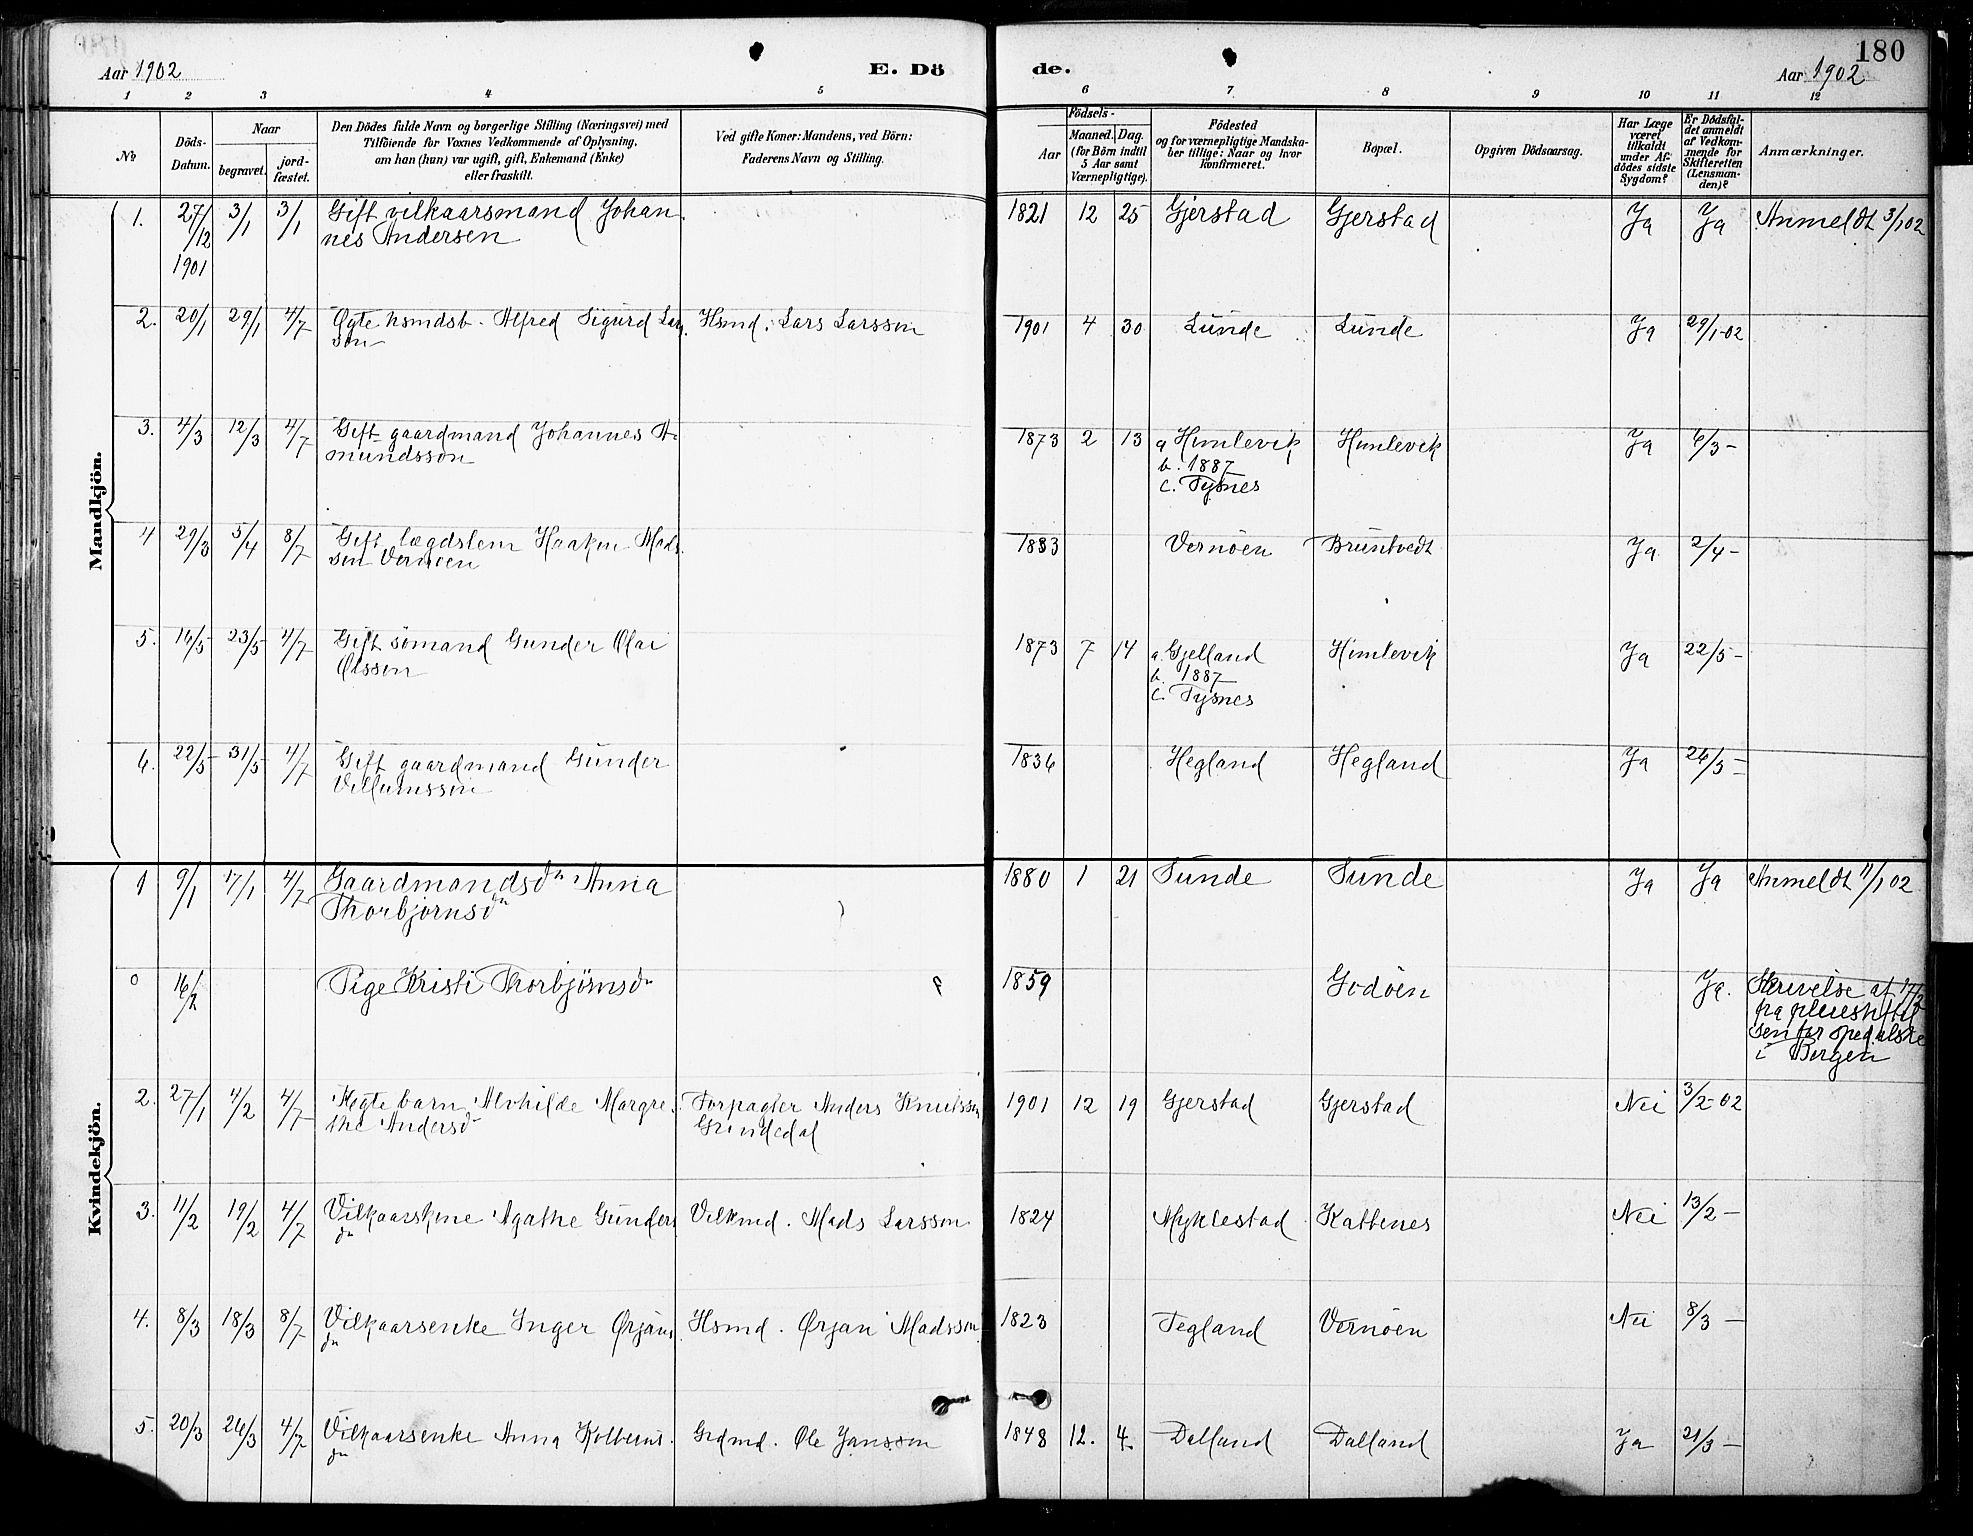 180
Aar 1902 E. Dö de. Aar 1902
1 2 3 4 5 6 7 8 9 10 11 12
№
Döds-Datum.
Naar
begravet.
jord-fæstet.
Den Dödes fulde Navn og borgerlige Stilling (Næringsvei) med
Tilföiende for Voxnes Vedkommende af Oplysning,
om han (hun) var ugift, gift, Enkemand (Enke)
eller fraskilt.
Ved gifte Koner: Mandens, ved Börn:
Faderens Navn og Stilling.
Födsels-
Aar
Maaned. Dag.
(for Börn indtil
5 Aar samt
Værnepligtige).
Födested
og for værnepligtige Mandska-
ber tillige: Naar og hvor
konfirmeret.
Bopæl.
Opgiven Dödsaarsag.
Har Læge
været
tilkaldt
under Af-
dödes sidste
Sygdom?
Er Dödsfal-
det anmeldt
af Vedkom-
mende for
Skifteretten
(Lensman-
den)?
Anmærkninger.
Mandkjön.
1. 27/12 3/1 3/1 Gift vilkaarsmand Johan- 1821 12 25 Gjerstad Gjerstad Ja Ja Anmeldt 3/1 02
1901 nes Andersen
2. 20/1 29/1 4/7 Ægte hsmdsb. Alfred Sigurd Lars- Hsmd. Lars Larsson 1901 4 30 Lunde Lunde Ja 29/1-02
son
3. 4/3 12/3 4/7 Gift gaardmand Johannes A- 1873 2 13 a Himlevik Himlevik Ja 6/3 -
mundsson b. 1887
c. Tysnes
4 29/3 5/4 8/7 Gift lægdslem Haaken Mads- 1833 Vernöen Bruntvedt Ja 2/4 -
son Vernöen
5. 16/5 23/5 4/7 Gift sömand Gunder Olai 1873 7 14 a. Gjelland Himlevik Ja 22/5 -
Olsson b. 1887
c. Tysnes
6. 22/5 31/5 4/7 Gift gaardmand Gunder 1836 Hegland Hegland Ja 26/5 -
Villumsson
Kvindekjön.
1 9/1 17/1 4/7 Gaardmandsdr Anna 1880 1 21 Sunde Sunde Ja Ja Anmeldt 11/1 02
Thorbjörnsdr
0 16/2 Pige Kristi Thorbjörnsdr ? 1859 Godöen Ja. Skrivelse af 17/2
fra pleiestiftel
sen for spedalske
i Bergen
2. 27/1 4/2 4/7 Ægte barn Alvhilde Margre- Forpagter Anders Knutsson 1901 12 19 Gjerstad Gjerstad Nei 3/2-02
the Andersd Grindedal
3. 11/2 19/2 4/7 Vilkaarskone Agathe Gunders Vilkmd. Mads Larsson 1824 Myklestad Kattenes Nei 13/2 -
dr
4. 8/3 18/3 8/7 Vilkaarsenke Inger Ørjans Hsmd. Ørjan Madsson 1823 Tegland Vernöen Nei 8/3 -
dr
5. 20/3 26/3 4/7 Vilkaarsenke Anna Kolbens Grdmd. Ole Jansson 1848 12. 4. Dalland Dalland Ja 21/3 -
dr